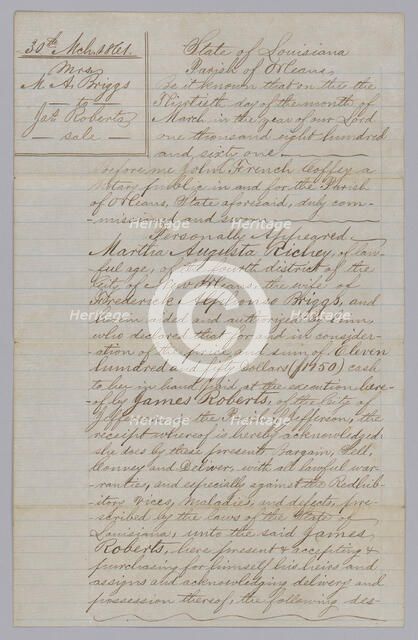 30th Mch. 1861.
Mrs
M. A. Briggs
to
Jas Roberts
sale
State of Louisiana
Parish of Orleans,
Be it known that on this the
Thirtieth day of the month of
March in the year of our Lord
one thousand eight hundred
and sixty one
Before me John French Coffey a
Notary public in and for the Parish
of Orleans, State aforesaid, duly com-
-missioned and sworn
Personally Appeared
Martha Augusta Richey, of law-
ful age, of the fourth district of the
City of New Orleans, the wife of
Frederick Alphonso Briggs, and
herein aided and authorized by him,
who declared that for and in consider-
ation of the price and sum of Eleven
hundred and fifty Dollars ($1150) cash
to her in hand paid at the execution here-
of by James Roberts, of the City of
Jefferson in the Parish of Jefferson, the
receipt whereof is hereby acknowledged,
she does by these presents Bargain, Sell,
Convey and Deliver, with all lawful war-
ranties, and especially against the Redhib-
itory vices, maladies, and defects, pre-
scribed by the laws of the State of
Louisiana, unto the said James
Roberts, here present & accepting &
purchasing for himself his heirs and
assigns and acknowledging delivery and
possession thereof, the following des-
Heritage
Images
Heritage
Images
Heritage
Images
Heritage
Images
Heritage
Images